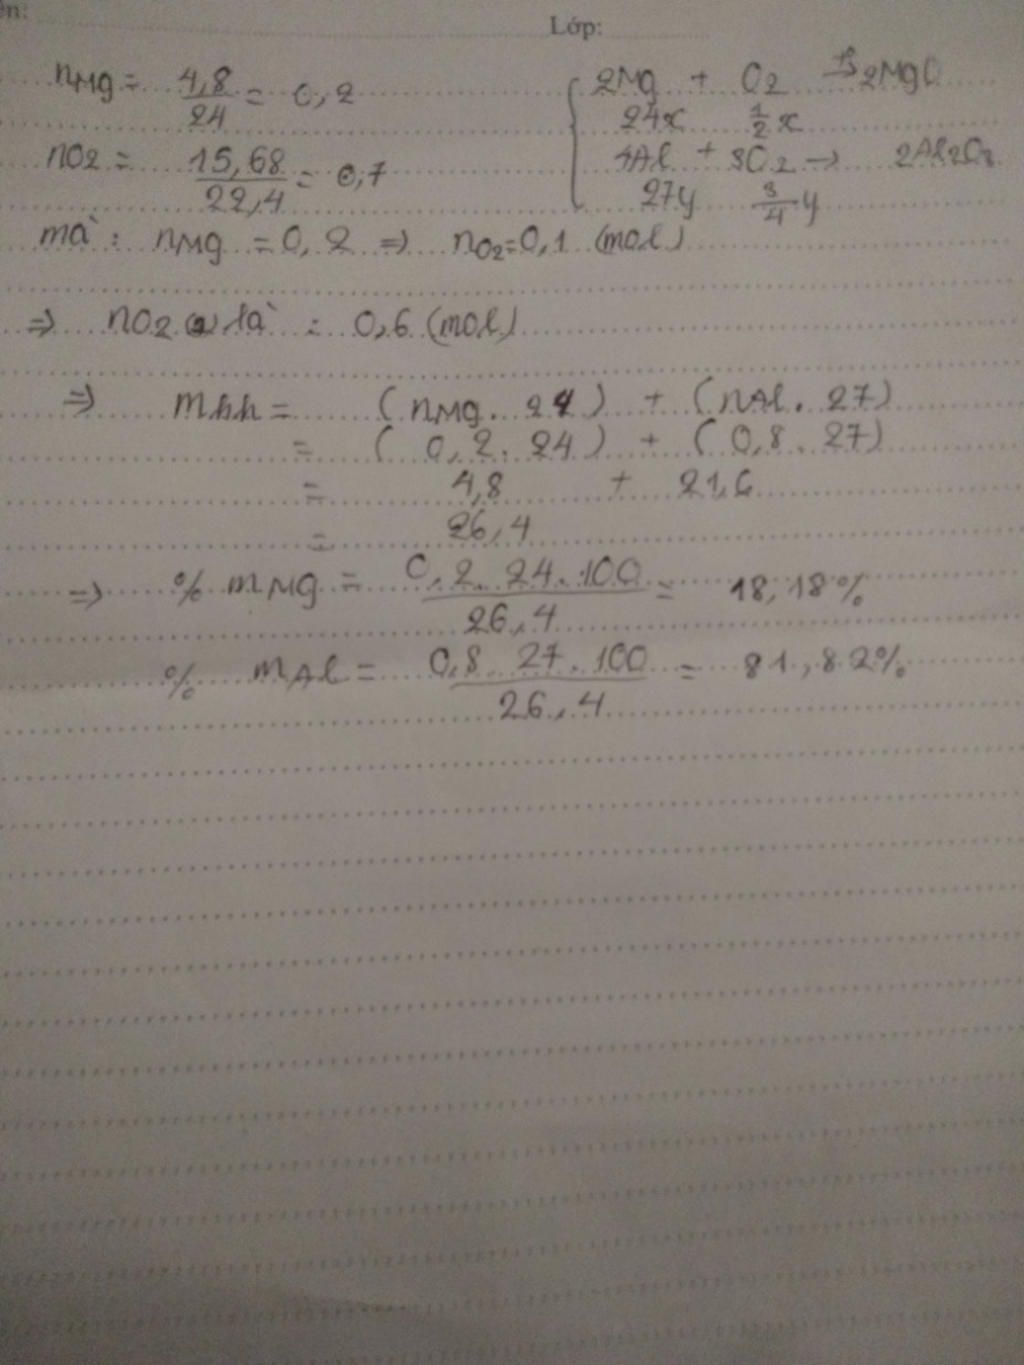 ên:
Lớp:
nMg = 4,8/24 = 0,2
2Mg + O2 → 2MgO
24x 1/2 x
nO2 = 15,68/22,4 = 0,7
4Al + 3O2 → 2Al2O3
27y 3/4 y
mà : nMg = 0,2 => nO2 = 0,1 (mol)
=> nO2 là : 0,6 (mol)
=> mhh = (nMg . 24) + (nAl . 27)
= (0,2 . 24) + (0,8 . 27)
= 4,8 + 21,6
= 26,4
=> % mMg = 0,2 . 24 . 100 / 26,4 = 18,18%
% mAl = 0,8 . 27 . 100 / 26,4 = 81,82%